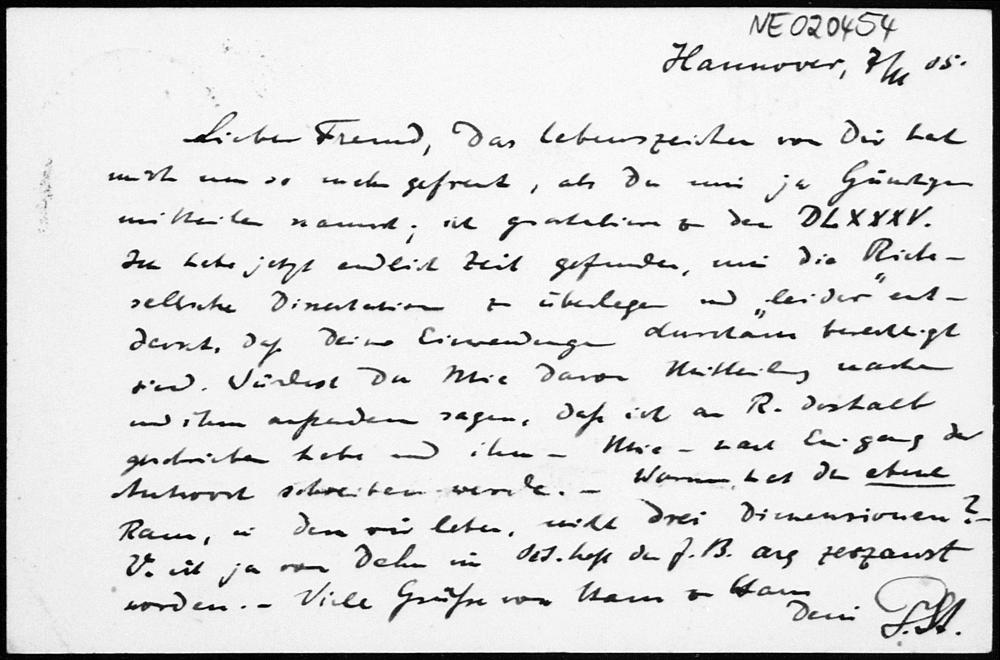 NE020454
Hannover, 7/II 05.
Lieber Freund, Das Lebenszeichen von Dir hat
mich um so mehr gefreut, als Du mir ja Günstiges
mitteilen kannst; ich gratuliere zu den DLXXXV.
Ich habe jetzt endlich Zeit gefunden, mir die
Dissertation zu überlegen und "leider" ent-
deckt, daß Deine Einwendungen durchaus berechtigt
sind. Würdest Du Mie davon Mitteilung machen
und ihm außerdem sagen, daß ich an R. deshalb
geschrieben habe und ihm – Mie – nach Eingang der
Antwort schreiben werde. – Warum hat der ebene
Raum, in dem wir leben, nicht drei Dimensionen? –
V. ist ja von Dehn im Okt.heft der J. B. arg zerzaust
worden. – Viele Grüße von Haus zu Haus
Dein P. St.